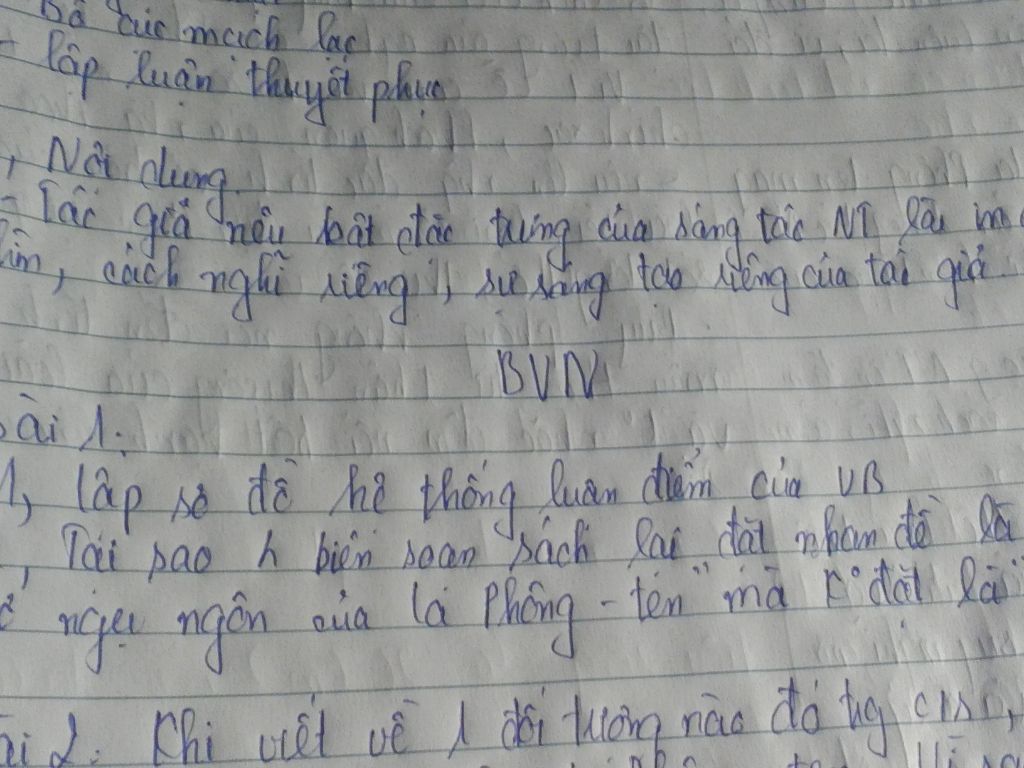 Bố cục mạch lạc
- lập luận thuyết phục
, Nội dung
- Tác giả nêu bật đặc trưng của sáng tác NT là in
cách nghĩ riêng, sự sáng tạo riêng của tác giả
BVN
Bài 1.
1, lập sơ đồ hệ thống luận điểm của VB
, Tại sao h biên soạn sách lại đặt nhan đề là
ngụ ngôn của La Phông - ten" mà k° đặt là "
Bài 2. Khi viết về 1 đối tượng nào đó tg